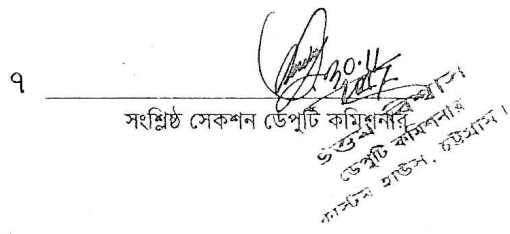 ৭
30.11
2017
সংশ্লিষ্ঠ সেকশন ডেপুটি কমিশনার
উত্তম বিশ্বাস
ডেপুটি কমিশনার
কাস্টম হাউস, চট্টগ্রাম।